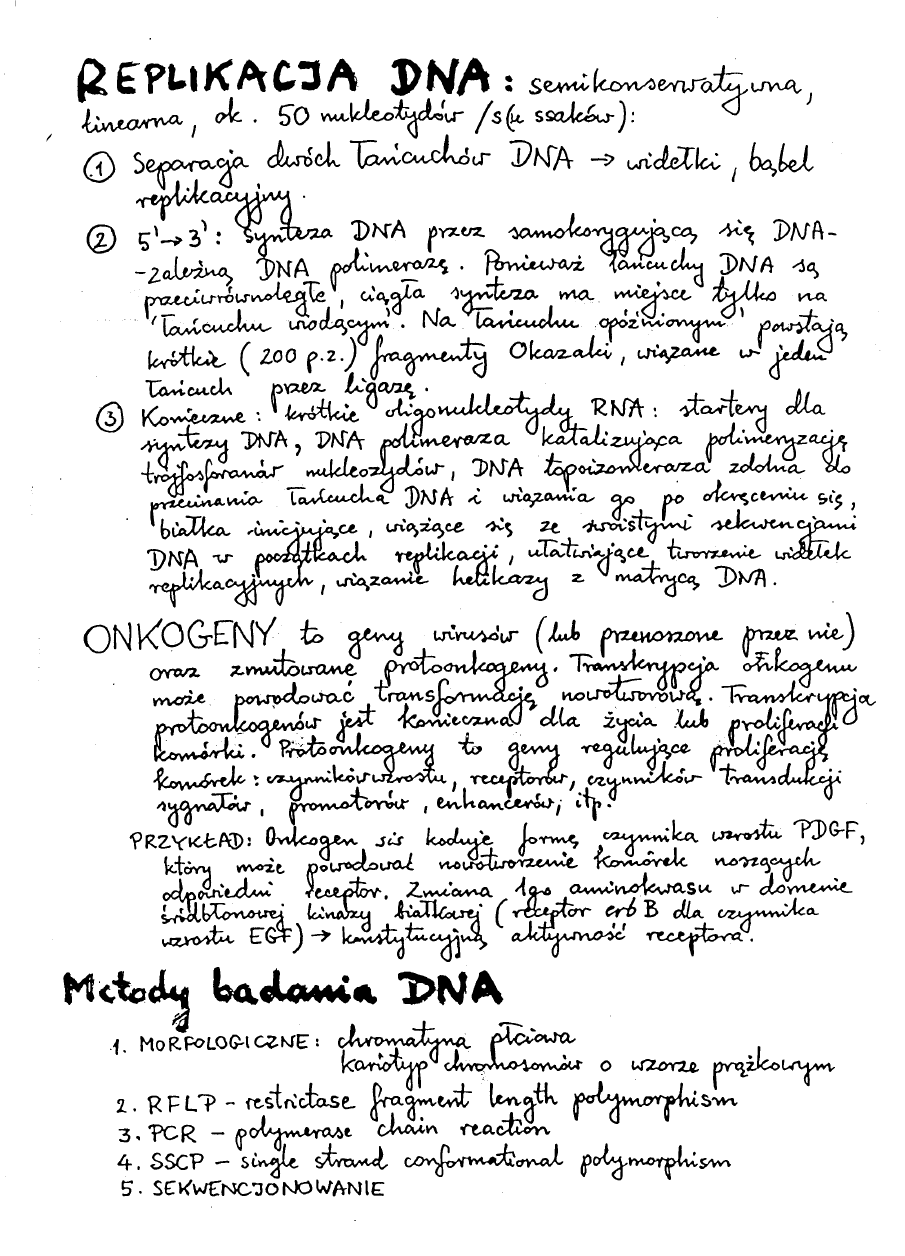 REPLIKACJA DNA: semikonserwatywna,
linearna, ok. 50 nukleotydów /s(u ssaków):
① Separacja dwóch łańcuchów DNA → widełki, bąbel
replikacyjny.
② 5'→3': synteza DNA przez samokorygującą się DNA-
-zależną DNA polimerazę. Ponieważ łańcuchy DNA są
przeciwrównoległe, ciągła synteza ma miejsce tylko na
'łańcuchu wiodącym'. Na 'łańcuchu opóźnionym' powstają
krótkie (200 p.z.) fragmenty Okazaki, wiązane w jeden
łańcuch przez ligazę.
③ Konieczne: krótkie oligonukleotydy RNA: startery dla
syntezy DNA, DNA polimeraza katalizująca polimeryzację
trójfosforanów nukleozydów, DNA topoizomeraza zdolna do
przecinania łańcucha DNA i wiązania go po okręceniu się,
białka inicjujące, wiążące się ze swoistymi sekwencjami
DNA w początkach replikacji, ułatwiające tworzenie widełek
replikacyjnych, wiązanie helikazy z matrycą DNA.
ONKOGENY to geny wirusów (lub przenoszone przez nie)
oraz zmutowane protoonkogeny. Transkrypcja onkogenu
może powodować transformację nowotworową. Transkrypcja
protoonkogenów jest konieczna dla życia lub proliferacji
komórki. Protoonkogeny to geny regulujące proliferację
komórek: czynników wzrostu, receptorów, czynników transdukcji
sygnałów, promotorów, enhancerów, itp.
PRZYKŁAD: Onkogen sis koduje formę czynnika wzrostu PDGF,
który może powodować nowotworzenie komórek noszących
odpowiedni receptor. Zmiana 1go aminokwasu w domenie
śródbłonowej kinazy białkowej (receptor erb B dla czynnika
wzrostu EGF) → konstytucyjną aktywność receptora.
Metody badania DNA
1. MORFOLOGICZNE: chromatyna płciowa
kariotyp chromosomów o wzorze prążkowym
2. RFLP - restrictase fragment length polymorphism
3. PCR - polymerase chain reaction
4. SSCP - single strand conformational polymorphism
5. SEKWENCJONOWANIE